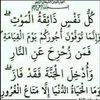 كُلُّ نَفْسٍ ذَائِقَةُ الْمَوْتِ ۗ
وَإِنَّمَا تُوَفَّوْنَ أُجُورَكُمْ يَوْمَ الْقِيَامَةِ ۖ
فَمَن زُحْزِحَ عَنِ النَّارِ
وَأُدْخِلَ الْجَنَّةَ فَقَدْ فَازَ ۗ
وَمَا الْحَيَاةُ الدُّنْيَا إِلَّا مَتَاعُ الْغُرُورِ